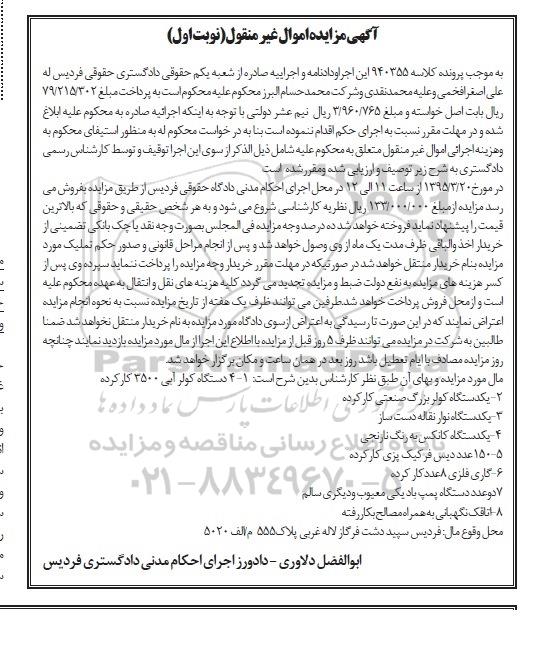 آگهی مزایده اموال غیر منقول(نوبت اول)
به موجب پرونده کلاسه ۹۴۰۳۵۵ این اجراودادنامه و اجراییه صادره از شعبه یکم حقوقی دادگستری حقوقی فردیس له
علی اصغر افخمی وعلیه محمدنقدی وشرکت محمدحسام البرز محکوم علیه محکوم است به پرداخت مبلغ ۷۹/۲۱۵/۳۰۲
ریال بابت اصل خواسته و مبلغ ۳/۹۶۰/۷۶۵ ریال نیم عشر دولتی با توجه به اینکه اجرائیه صادره به محکوم علیه ابلاغ
شده و در مهلت مقرر نسبت به اجرای حکم اقدام ننموده است بنا به در خواست محکوم له به منظور استیفای محکوم به
وهزینه اجرائی اموال غیر منقول متعلق به محکوم علیه شامل ذیل الذکر از سوی این اجرا توقیف و توسط کارشناس رسمی
دادگستری به شرح زیر توصیف و ارزیابی شده ومقررشده است
در مورخ۱۳۹۵/۳/۲۰ از ساعت ۱۱ الی ۱۲ در محل اجرای احکام مدنی دادگاه حقوقی فردیس از طریق مزایده بفروش می
رسد مزایده ازمبلغ ۱۳۳/۰۰۰/۰۰۰ ریال نظریه کارشناسی شروع می شود و به هر شخص حقیقی و حقوقی که بالاترین
قیمت را پیشنهاد نماید فروخته خواهد شد ده درصد وجه مزایده فی المجلس بصورت وجه نقد یا چک بانکی تضمینی از
خریدار اخذ والباقی ظرف مدت یک ماه از وی وصول خواهد شد و پس از انجام مراحل قانونی و صدور حکم تملیک مورد
مزایده بنام خریدار منتقل خواهد شد در صورتیکه در مهلت مقرر خریدار وجه مزایده را پرداخت ننماید سپرده وی پس از
کسر هزینه های مزایده به نفع دولت ضبط و مزایده تجدید می گردد کلیه هزینه های نقل وانتقال به عهده محکوم علیه
است و ازمحل فروش پرداخت خواهد شد.طرفین می توانند ظرف یک هفته از تاریخ مزایده نسبت به نحوه انجام مزایده
اعتراض نمایند که در این صورت تا رسیدگی به اعتراض ازسوی دادگاه مورد مزایده به نام خریدار منتقل نخواهد شد ضمنا
طالبین به شرکت در مزایده می توانند ظرف ۵ روز قبل از مزایده با اطلاع این اجرا از مال مورد مزایده بازدید نمایند چنانچه
روز مزایده مصادف با ایام تعطیل باشد روز بعد در همان ساعت و مکان برگزار خواهد شد.
مال مورد مزایده و بهای آن طبق نظر کارشناس بدین شرح است: ۱-۴ دستگاه کولر آبی ۳۵۰۰ کار کرده
۲-یکدستگاه کولر بزرگ صنعتی کار کرده
۳-یکدستگاه نوار نقاله دست ساز
۴-یکدستگاه کانکس به رنگ نارنجی
۵-۱۵۰عدد دیس فر کیک پزی کار کرده
۶-گاری فلزی ۸عدد کار کرده
۷دوعدد دستگاه پمپ باد یکی معیوب ودیگری سالم
۸-اتاقک نگهبانی به همراه مصالح بکاررفته
محل وقوع مال: فردیس سپید دشت فرگاز لاله غربی پلاک۵۵۵ م/الف ۵۰۲۰
ابوالفضل دلاوری - دادورز اجرای احکام مدنی دادگستری فردیس
پایگاه اطلاع رسانی مناقصه و مزایده
۰۲۱-۸۸۳۴۹۶۷۰-۵